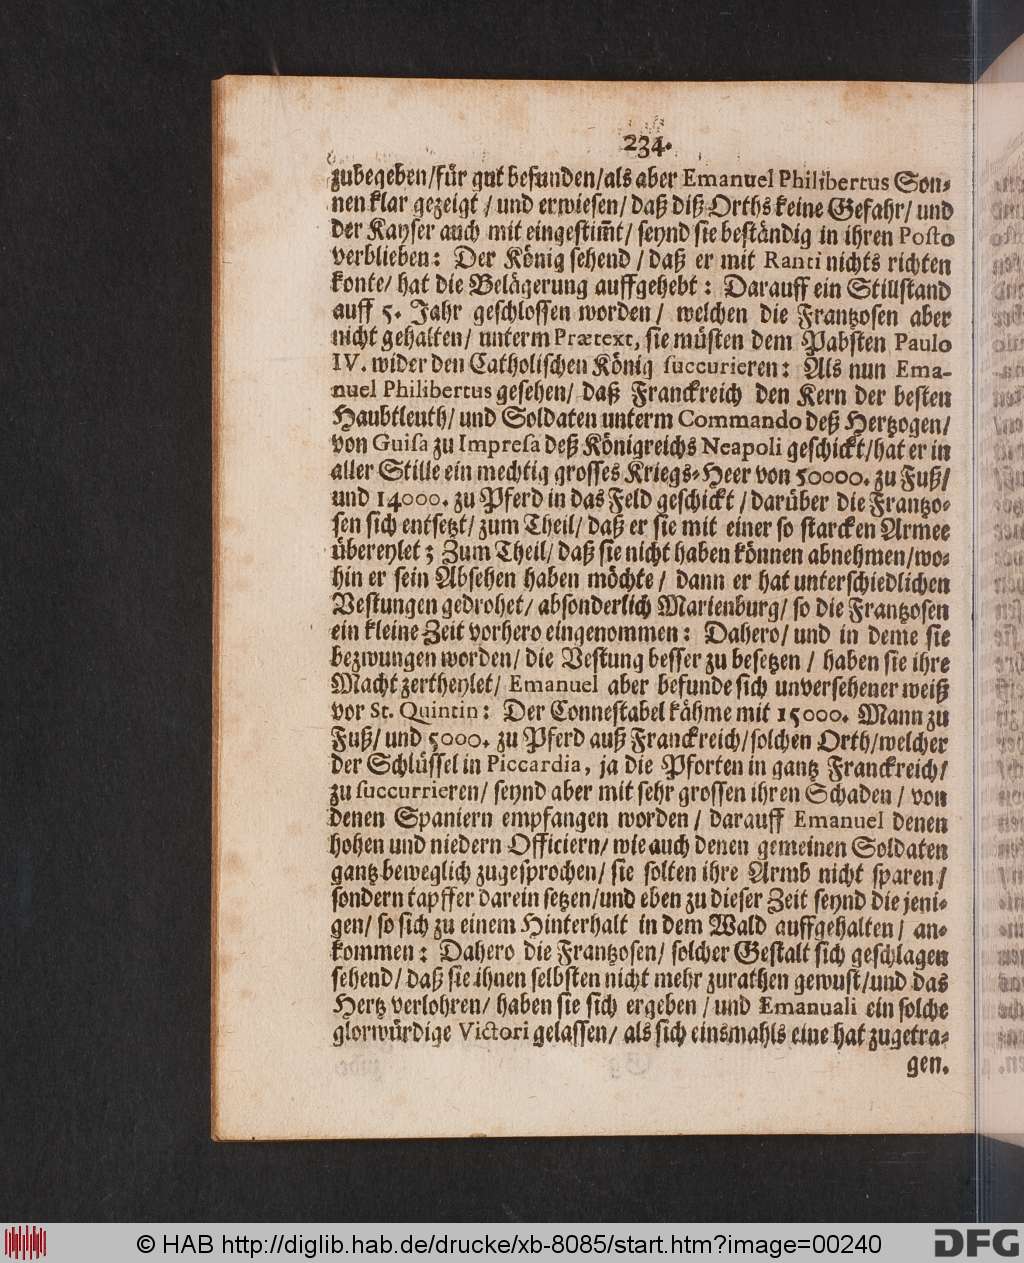 234.
zubegeben/für gut befunden/als aber Emanuel Philibertus Son-
nen klar gezeigt / und erwiesen/ daß diß Orths keine Gefahr/ und
der Kayser auch mit eingestim̃t/ seynd sie beständig in ihren Posto
verblieben: Der König sehend / daß er mit Ranti nichts richten
konte/ hat die Belägerung auffgehebt: Darauff ein Stillstand
auff 5. Jahr geschlossen worden/ welchen die Frantzosen aber
nicht gehalten/ unterm Prætext, sie müsten dem Pabsten Paulo
IV. wider den Catholischen König succurieren: Als nun Ema-
nuel Philibertus gesehen/ daß Franckreich den Kern der besten
Haubtleuth/ und Soldaten unterm Commando deß Hertzogen/
von Guisa zu Impresa deß Königreichs Neapoli geschickt/hat er in
aller Stille ein mechtig grosses Kriegs-Heer von 50000. zu Fuß/
und 14000. zu Pferd in das Feld geschickt / darüber die Frantzo-
sen sich entsetzt/ zum Theil/ daß er sie mit einer so starcken Armee
übereylet; Zum Theil/ daß sie nicht haben können abnehmen/wo-
hin er sein Absehen haben möchte / dann er hat unterschiedlichen
Vestungen gedrohet/ absonderlich Marienburg/ so die Frantzosen
ein kleine Zeit vorhero eingenommen: Dahero/ und in deme sie
bezwungen worden/ die Vestung besser zu besetzen / haben sie ihre
Macht zertheylet/ Emanuel aber befunde sich unversehener weiß
vor St. Quintin: Der Connestabel kähme mit 15000. Mann zu
Fuß/ und 5000. zu Pferd auß Franckreich/solchen Orth/welcher
der Schlüssel in Piccardia, ja die Pforten in gantz Franckreich/
zu succurrieren/ seynd aber mit sehr grossen ihren Schaden / von
denen Spaniern empfangen worden / darauff Emanuel denen
hohen und niedern Officiern/ wie auch denen gemeinen Soldaten
gantz beweglich zugesprochen/ sie solten ihre Armb nicht sparen/
sondern tapffer darein setzen/und eben zu dieser Zeit seynd die jeni-
gen/ so sich zu einem Hinterhalt in dem Wald auffgehalten / an-
kommen: Dahero die Frantzosen/ solcher Gestalt sich geschlagen
sehend/ daß sie ihnen selbsten nicht mehr zurathen gewust/und das
Hertz verlohren/ haben sie sich ergeben / und Emanuali ein solche
glorwürdige Victori gelassen/ als sich einsmahls eine hat zugetra-
gen.
© HAB http://diglib.hab.de/drucke/xb-8085/start.htm?image=00240
DFG